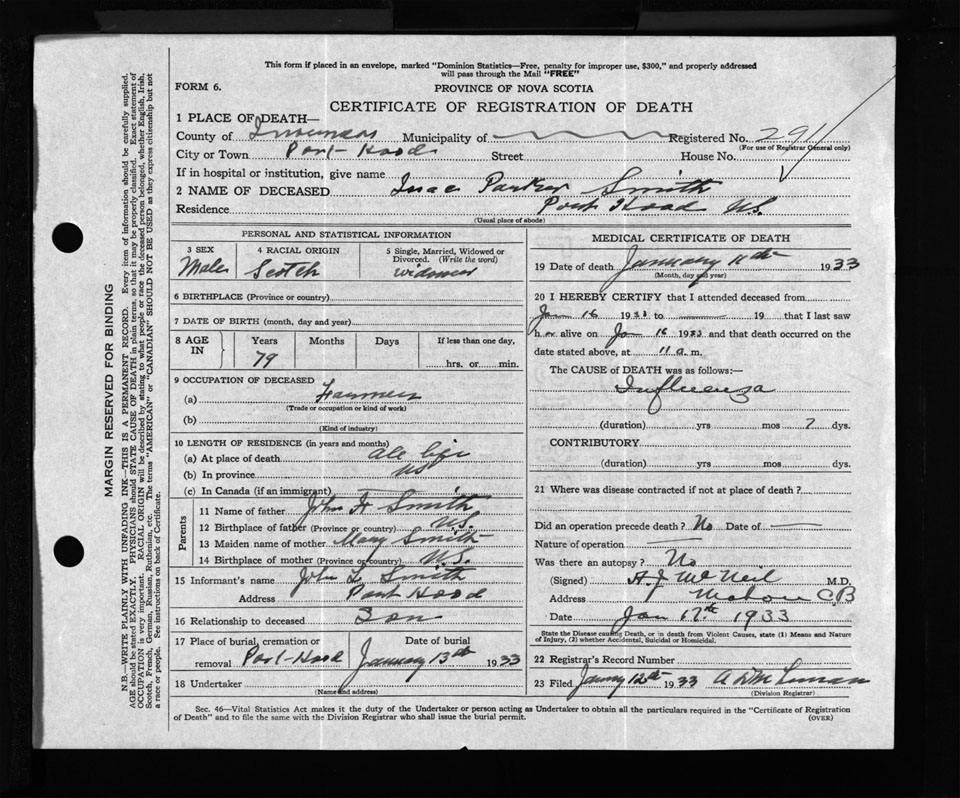 This form if placed in an envelope, marked "Dominion Statistics—Free, penalty for improper use, $300," and properly addressed
will pass through the Mail "FREE"
FORM 6.
PROVINCE OF NOVA SCOTIA
CERTIFICATE OF REGISTRATION OF DEATH
1 PLACE OF DEATH—
County of Inverness Municipality of Registered No. 2911
(For use of Registrar General only)
City or Town Port Hood Street House No.
If in hospital or institution, give name
2 NAME OF DECEASED Parker Smith
Residence Port Hood N.S.
(Usual place of abode)
PERSONAL AND STATISTICAL INFORMATION
3 SEX
Male
4 RACIAL ORIGIN
Scotch
5 Single, Married, Widowed or
Divorced. (Write the word)
widowed
6 BIRTHPLACE (Province or country)
7 DATE OF BIRTH (month, day and year)
8 AGE
IN
Years
79
Months
Days
If less than one day,
hrs. or min.
9 OCCUPATION OF DECEASED
(a) Farmer
(Trade or occupation or kind of work)
(b)
(Kind of industry)
10 LENGTH OF RESIDENCE (in years and months)
(a) At place of death all life
(b) In province NS
(c) In Canada (if an immigrant)
Parents
11 Name of father John Smith
12 Birthplace of father (Province or country) N.S.
13 Maiden name of mother Mary Smith
14 Birthplace of mother (Province or country) N.S.
15 Informant's name John L. Smith
Address Port Hood
16 Relationship to deceased Son
17 Place of burial, cremation or Date of burial
removal Port-Hood January 13th 1933
18 Undertaker
(Name and address)
MEDICAL CERTIFICATE OF DEATH
19 Date of death January 11th 1933
(Month, day and year)
20 I HEREBY CERTIFY that I attended deceased from
Jan 16 1933 to 19 that I last saw
h alive on Jan 16 1933 and that death occurred on the
date stated above, at 11 a. m.
The CAUSE of DEATH was as follows:—
Influenza
(duration) yrs mos 7 dys.
CONTRIBUTORY
(duration) yrs. mos. dys.
21 Where was disease contracted if not at place of death?
Did an operation precede death? No Date of —
Nature of operation —
Was there an autopsy? No
(Signed) A. J. McNeil M.D.
Address Mabou CB
Date Jan 17th 1933
State the Disease causing Death, or in death from Violent Causes, state (1) Means and Nature
of Injury, (2) whether Accidental, Suicidal or Homicidal.
22 Registrar's Record Number
23 Filed January 12th 1933
(Division Registrar)
Sec. 46—Vital Statistics Act makes it the duty of the Undertaker or person acting as Undertaker to obtain all the particulars required in the "Certificate of Registration
of Death" and to file the same with the Division Registrar who shall issue the burial permit.
(OVER)
MARGIN RESERVED FOR BINDING
N.B.—WRITE PLAINLY WITH UNFADING INK—THIS IS A PERMANENT RECORD. Every item of information should be carefully supplied.
AGE should be stated EXACTLY. PHYSICIANS should STATE CAUSE OF DEATH in plain terms, so that it may be properly classified. Exact statement of
OCCUPATION is very important. RACIAL ORIGIN will be described by stating to what people or race the deceased person belonged, whether English, Irish,
Scotch, French, German, Russian, Ruthenian, etc. The terms "AMERICAN" or "CANADIAN" SHOULD NOT BE USED as they express citizenship but not
a race or people. See instructions on back of Certificate.